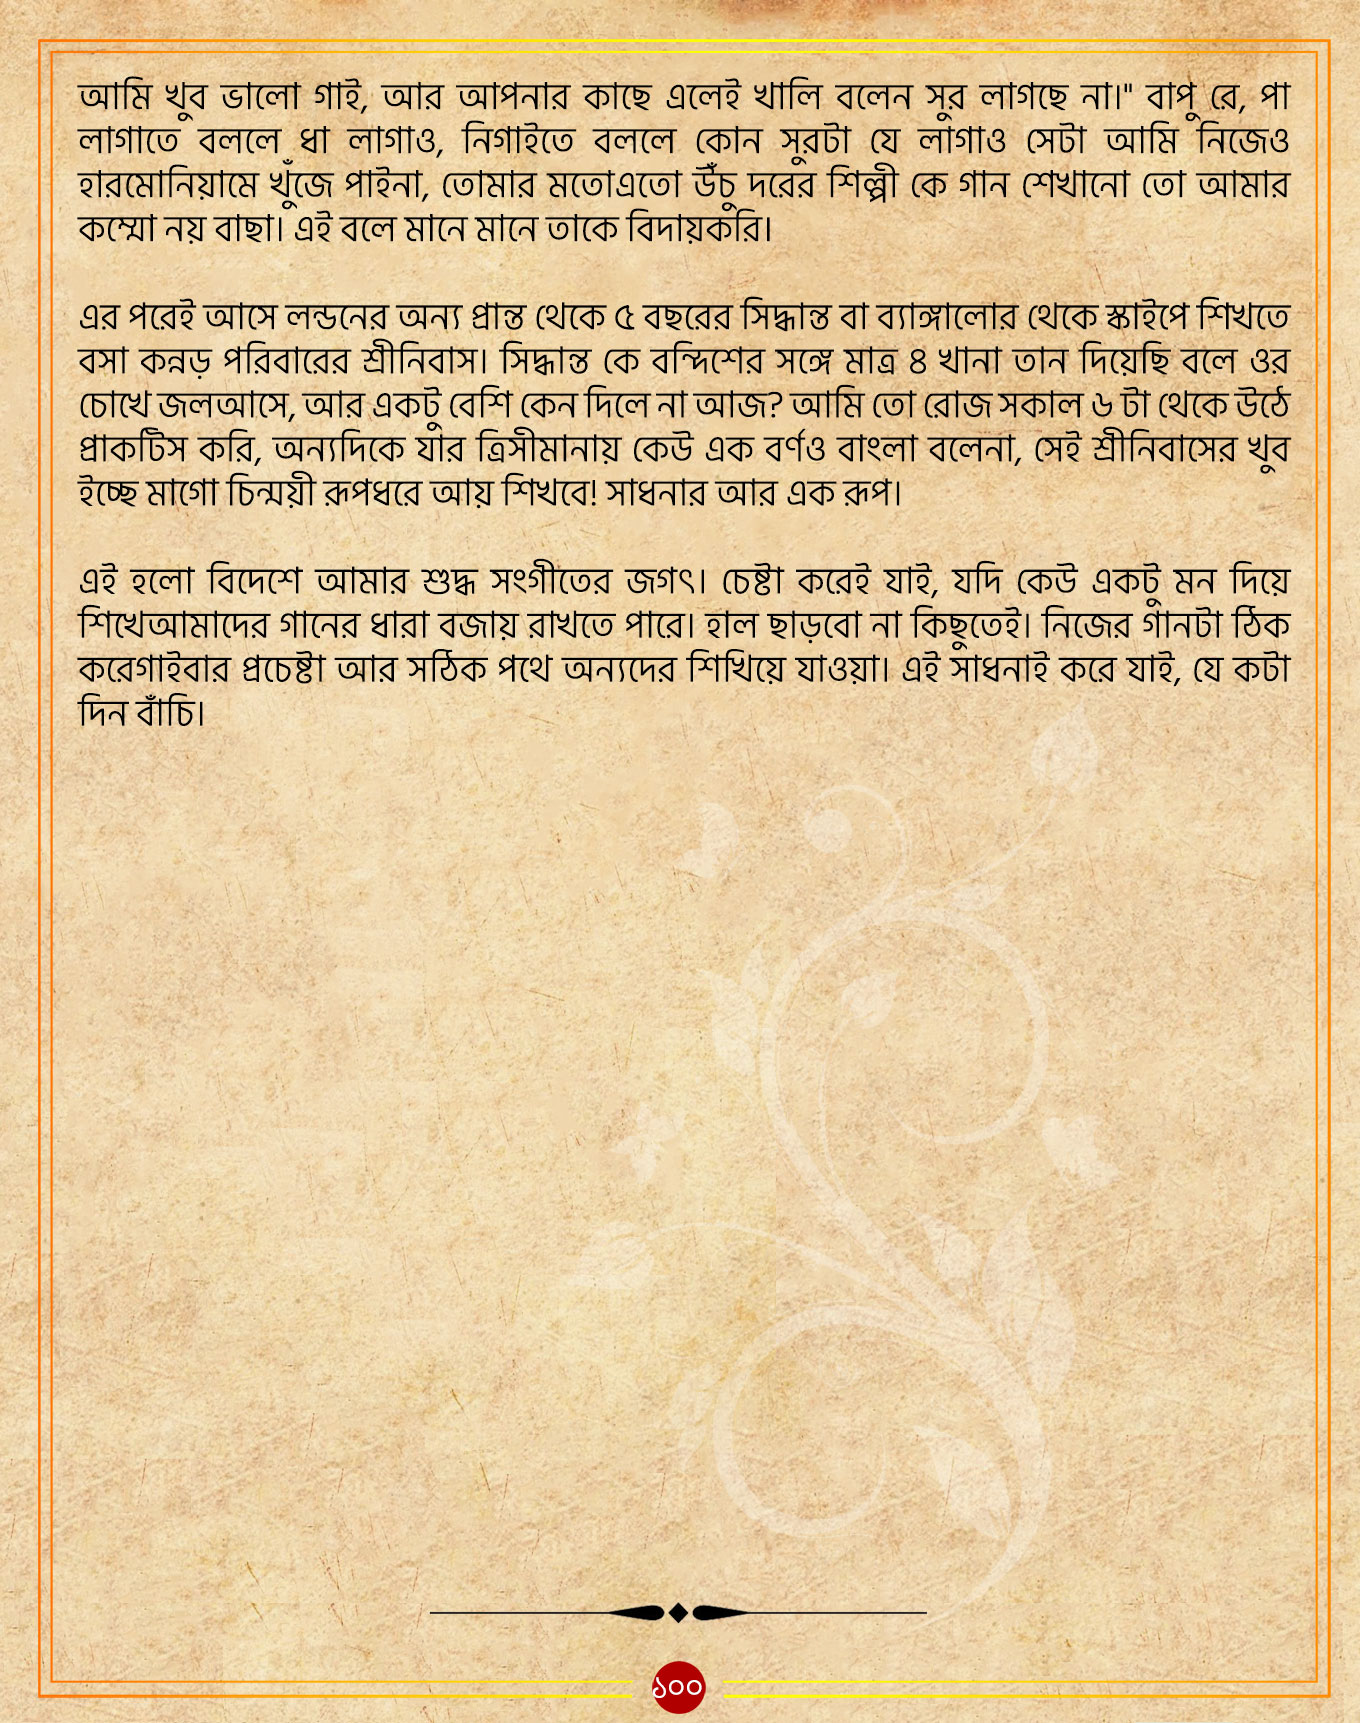 আমি খুব ভালো গাই, আর আপনার কাছে এলেই খালি বলেন সুর লাগছে না।" বাপু রে, পা
লাগাতে বললে ধা লাগাও, নিগাইতে বললে কোন সুরটা যে লাগাও সেটা আমি নিজেও
হারমোনিয়ামে খুঁজে পাইনা, তোমার মতোএতো উঁচু দরের শিল্পী কে গান শেখানো তো আমার
কম্মো নয় বাছা। এই বলে মানে মানে তাকে বিদায়করি।
এর পরেই আসে লন্ডনের অন্য প্রান্ত থেকে ৫ বছরের সিদ্ধান্ত বা ব্যাঙ্গালোর থেকে স্কাইপে শিখতে
বসা কন্নড় পরিবারের শ্রীনিবাস। সিদ্ধান্ত কে বন্দিশের সঙ্গে মাত্র ৪ খানা তান দিয়েছি বলে ওর
চোখে জলআসে, আর একটু বেশি কেন দিলে না আজ? আমি তো রোজ সকাল ৬ টা থেকে উঠে
প্রাকটিস করি, অন্যদিকে যার ত্রিসীমানায় কেউ এক বর্ণও বাংলা বলেনা, সেই শ্রীনিবাসের খুব
ইচ্ছে মাগো চিন্ময়ী রূপধরে আয় শিখবে! সাধনার আর এক রূপ।
এই হলো বিদেশে আমার শুদ্ধ সংগীতের জগৎ। চেষ্টা করেই যাই, যদি কেউ একটু মন দিয়ে
শিখেআমাদের গানের ধারা বজায় রাখতে পারে। হাল ছাড়বো না কিছুতেই। নিজের গানটা ঠিক
করেগাইবার প্রচেষ্টা আর সঠিক পথে অন্যদের শিখিয়ে যাওয়া। এই সাধনাই করে যাই, যে কটা
দিন বাঁচি।
১০০